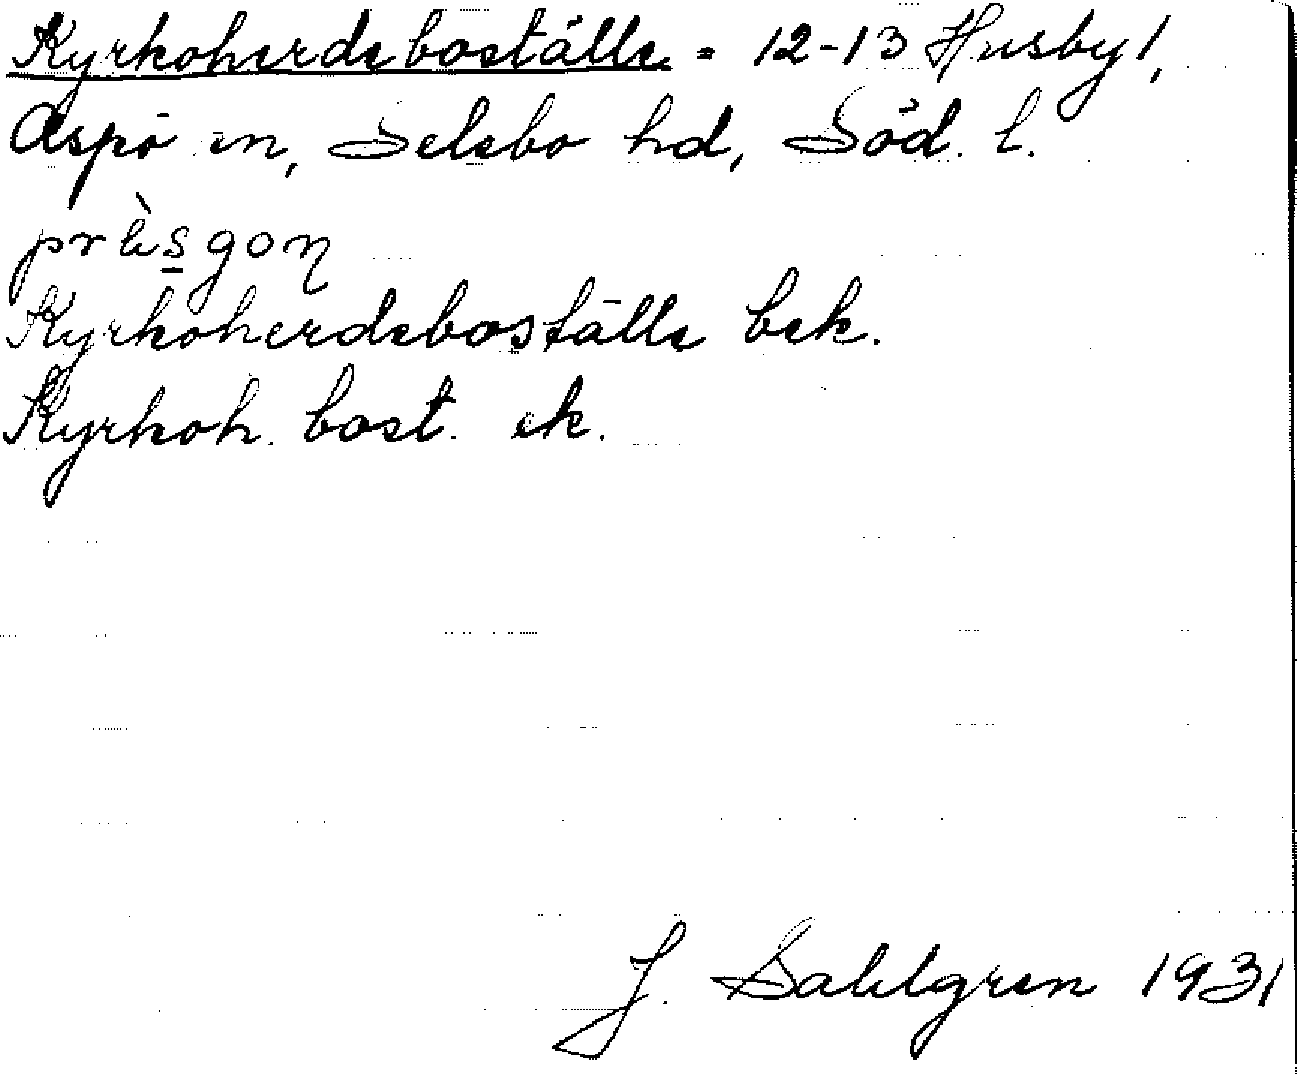 Kyrkoherdeboställe = 12-13 Husby 1,
Aspö sn, Selebo hd, Söd. l.
prɛ̀s̲goŋ
Kyrkoherdeboställe bek.
Kyrkoh. bost. ek.
J. Sahlgren 1931